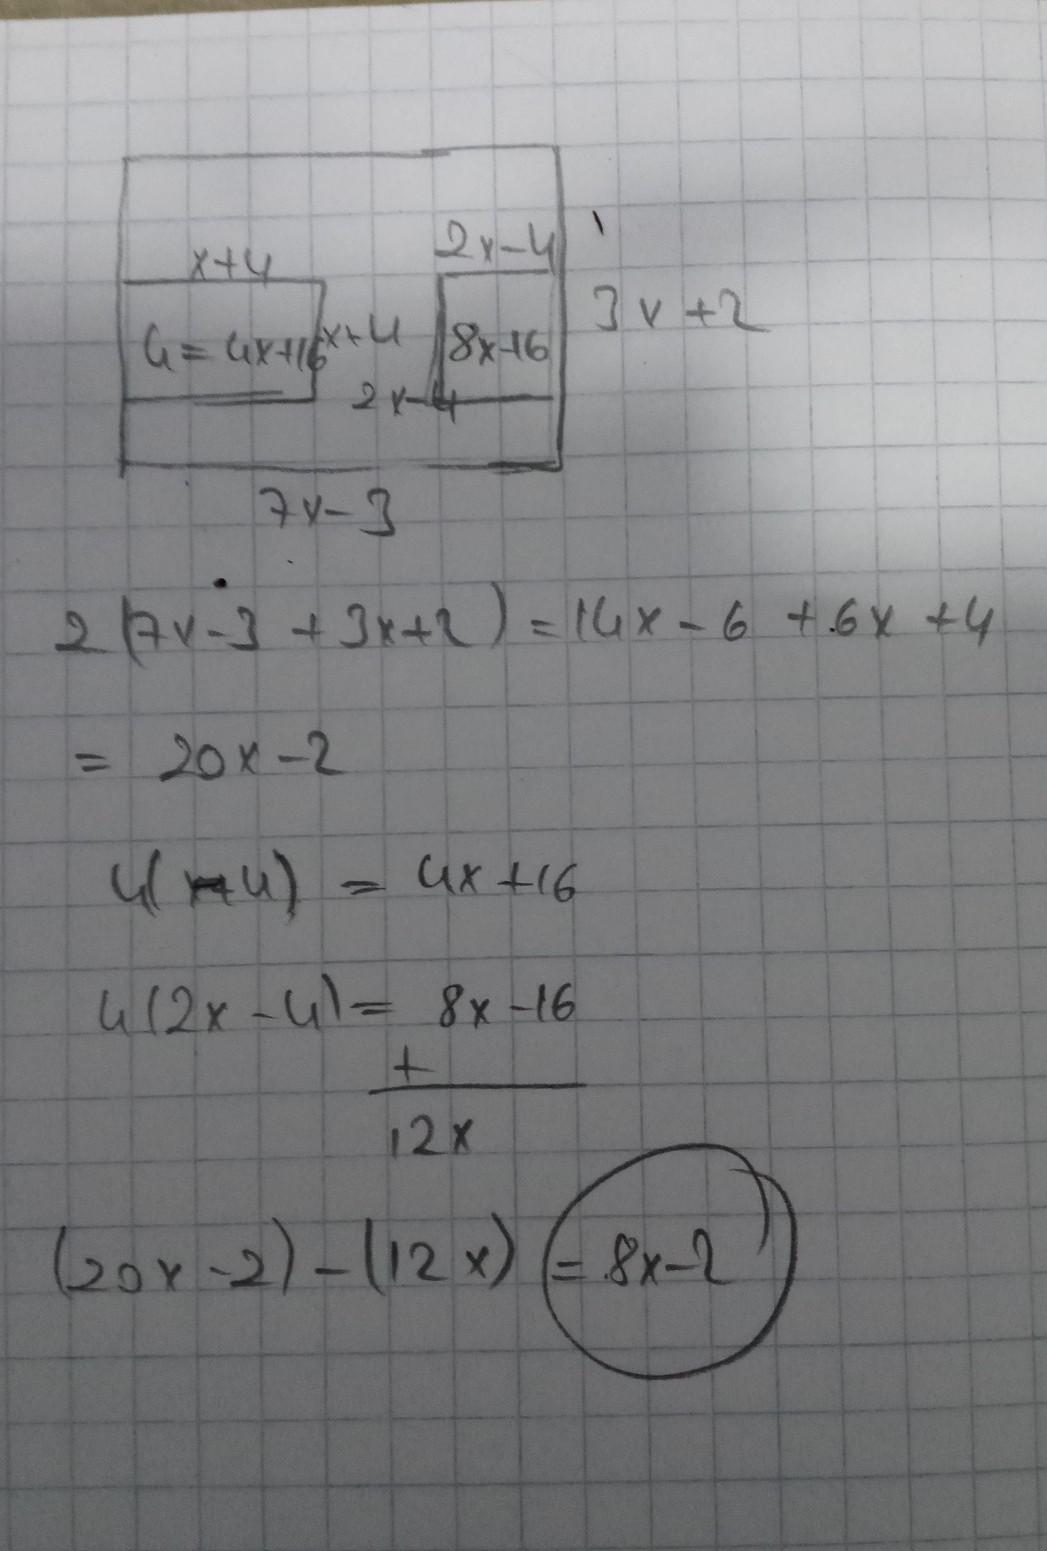 2x-4
x+4
3x+2
4=4x+16 x+4 8x-16
2x-4
7x-3
2(7x-3+3x+2)=14x-6+6x+4
= 20x-2
4(x+4) = 4x+16
4(2x-4)= 8x-16
+
12x
(20x-2)-(12x) =8x-2